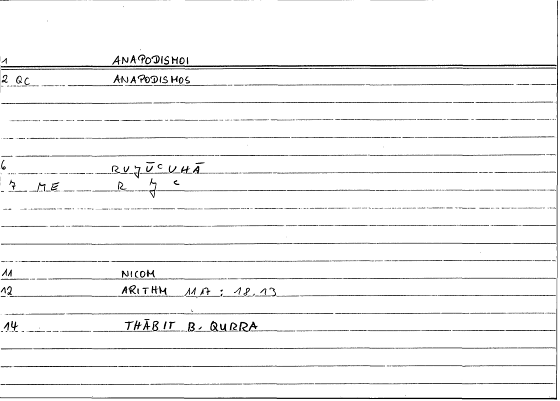 1 ANAPODISMOI
2 QC ANAPODISMOS
6 RUǦŪʿUHĀ
7 ME R ǧ ʿ
11 NICOM
12 ARITHM MA : 18.13
14 THĀBIT B. QURRA